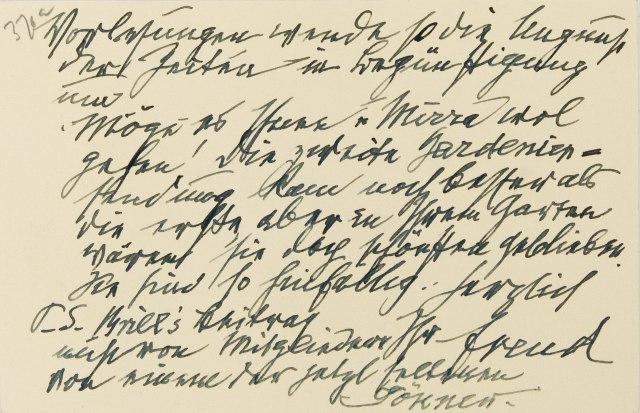 Vorlesungen wende so die Ungunst
der Zeiten in Begünstigung
um
Möge es Ihnen u Mirra wol
gehen! Die zweite Gardenien=
sendung kam noch besser als
die erste, aber in Ihrem Garten
wären sie doch schönsten geblieben
Sie sind so hinfällig. Herzlich
P.S. Brill's Beitrag
nicht von Mitgliedern Ihr Freud
von einem der jetzt seltenen
Gönner.